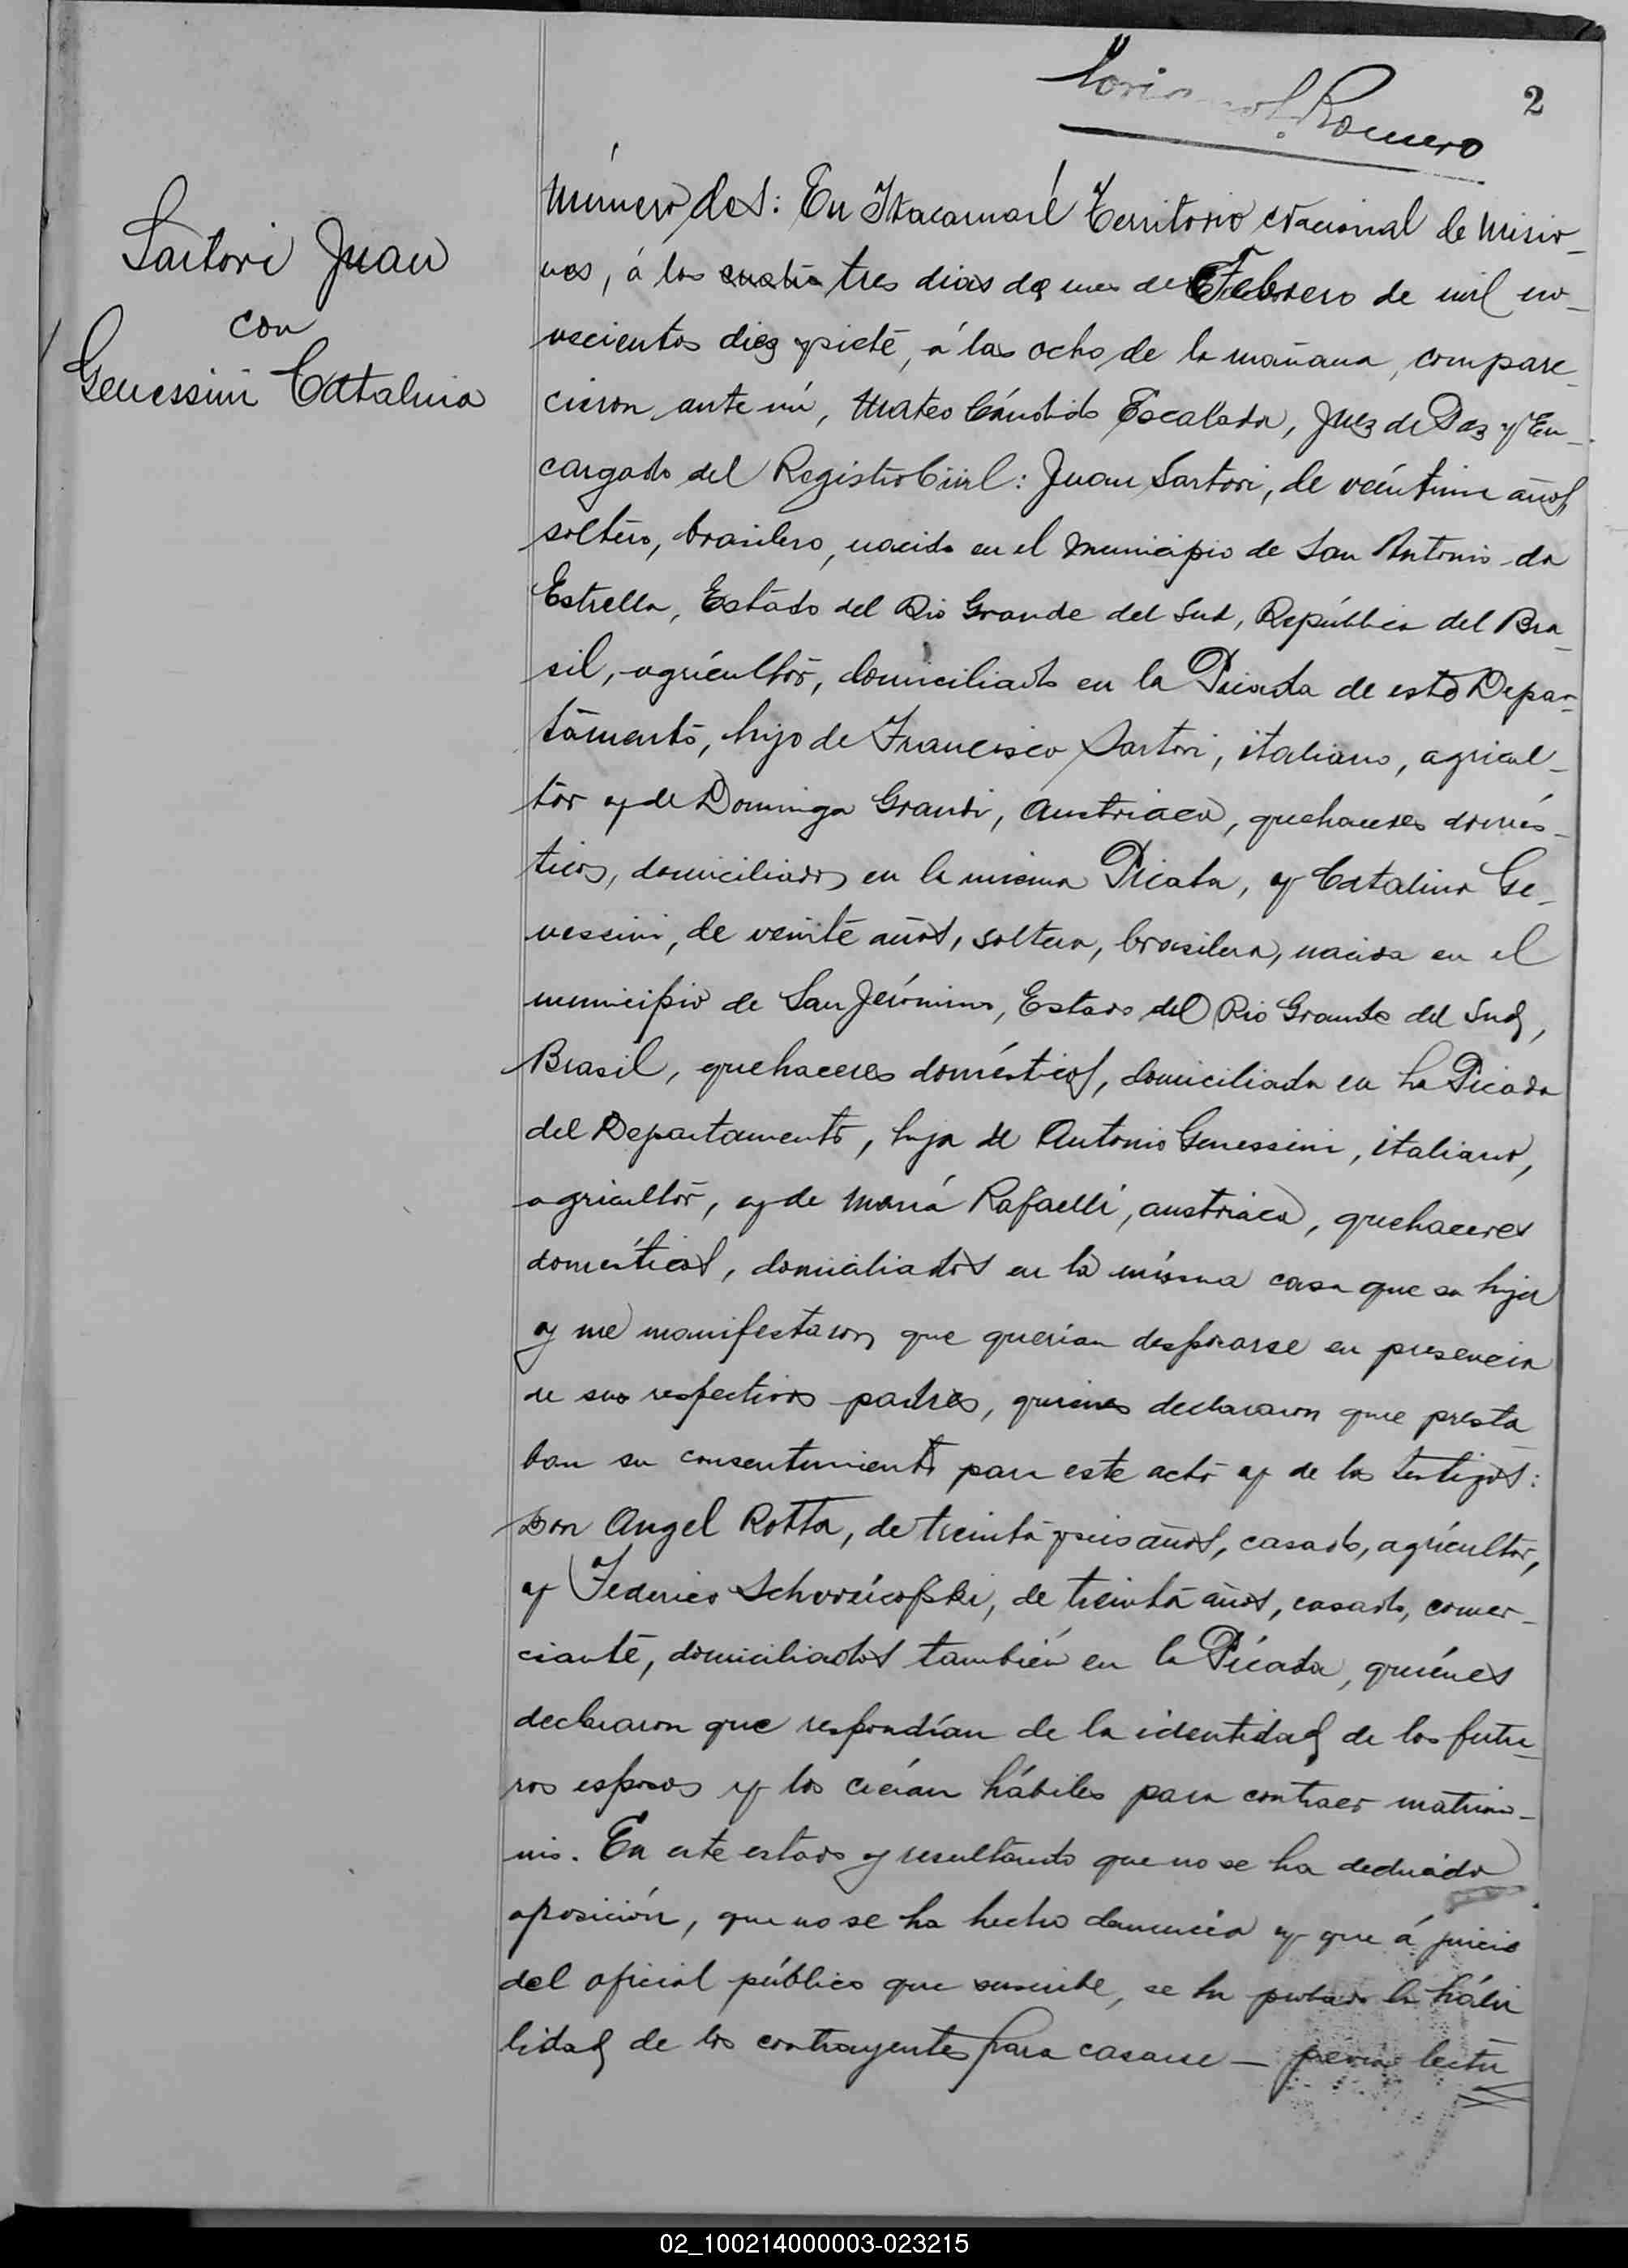 Romero
2
Sartori Juan
con
Genessini Catalina
Número dos: En Itacaruaré Territorio Nacional de Misio-
nes, á los cuatro tres dias de mes de Febrero de mil no-
vecientos diez y siete, á las ocho de la mañana, compare-
cieron ante mí, Mateo Cándido Escalada, Juez de Paz y En-
cargado del Registro Civil: Juan Sartori, de veintiun años,
soltero, brasilero, nacido en el Municipio de San Antonio da
Estrella, Estado del Rio Grande del Sud, República del Bra-
sil, agricultor, domiciliado en la Picada de este Depar-
tamento, hijo de Francisco Sartori, italiano, agricul-
tor y de Dominga Grandi, Austriaca, quehaceres domés-
ticos, domiciliados en la misma Picada, y Catalina Ge-
nessini, de veinte años, soltera, brasilera, nacida en el
municipio de San Jerónimo, Estado del Rio Grande del Sud,
Brasil, quehaceres domésticos, domiciliada en la Picada
del Departamento, hija de Antonio Genessini, italiano,
agricultor, y de María Rafaelli, austriaca, quehaceres
domésticos, domiciliados en la misma casa que su hija
y me manifestaron que querían desposarse en presencia
de sus respectivos padres, quienes declararon que presta
ban su consentimiento para este acto y de los testigos:
Don Angel Rotta, de treinta y seis años, casado, agricultor,
y Federico de treinta años, casado, comer-
ciante, domiciliados también en la Picada, quiénes
declararon que respondían de la identidad de los futu-
ros esposos y los creían hábiles para contraer matrimo-
nio. En este estado y resultando que no se ha deducido
oposición, que no se ha hecho denuncia y que á juicio
del oficial público que suscribe, se ha probado la hábi
lidad de los contrayentes para casarse — previa lectu
02_100214000003-023215